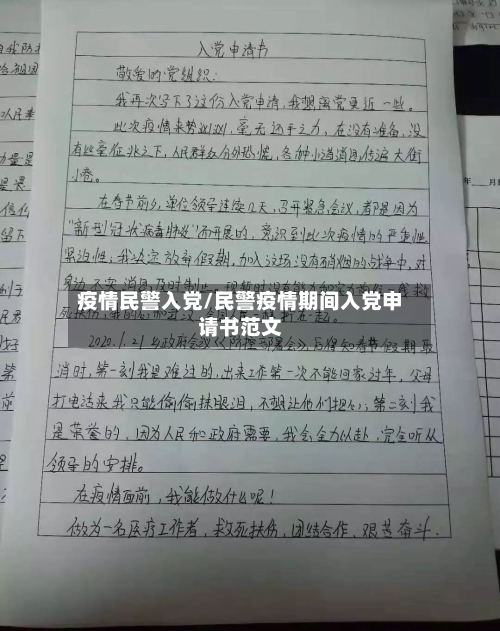 入党申请书
敬爱的党组织:
我再次写下了这份入党申请,我想离党更近一些。
此次疫情来势汹汹,毫无还手之力,在没有准备,没
有些毫征兆之下,人民群众分外恐慌,各种小道消息传遍大街
小巷。
在春节前夕,单位领导连续几天,召开紧急会议,都是因为
“新型冠状病毒肺炎”而开展的,意识到此次疫情的严重性
紧迫性,我决定放弃假期,加入这场没有硝烟的战争中,对
疫情民警入党/民警疫情期间入党申
请书范文
死扶伤,
2020.1.21
消时,第一刻我是难过的,出来工作第一次不能回家过年,父母
打电话来我只能偷偷抹眼泪,不想让他们担心;第二刻我
是荣誉的,因为人民和政府需要,我会全力以赴,完全听从
领导的安排。
在疫情面前,我能做什么呢!
做为一名医疗工作者,救死扶伤,团结合作,艰苦奋斗.